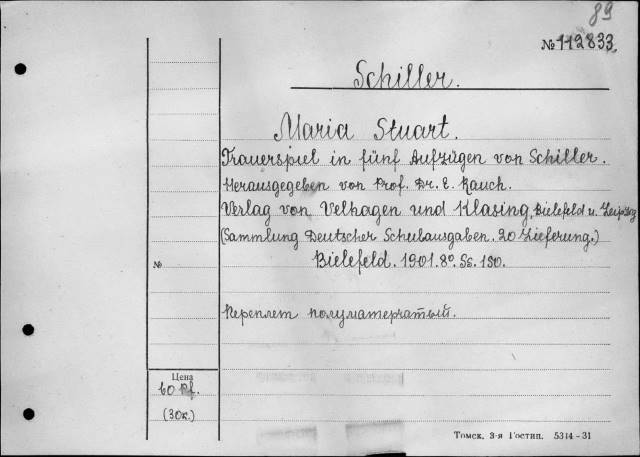 89
№ 112833
Schiller.
Maria Stuart.
Trauerspiel in fünf Aufzügen von Schiller.
Herausgegeben von Prof. Dr. E. Rauch.
Verlag von Velhagen und Klasing, Bielefeld u. Leipzig
(Sammlung Deutscher Schulausgaben. 20 Lieferung.)
№
Bielefeld. 1901. 8º. Ss. 180.
Переплет полуматерчатый.
Цена
60 Pf.
(30к.)
Томск, 3-я Гостип. 5314-31